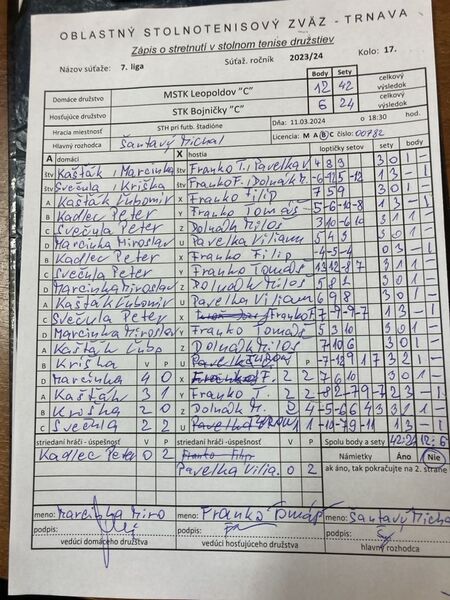 OBLASTNÝ STOLNOTENISOVÝ ZVÄZ - TRNAVA
Zápis o stretnutí v stolnom tenise družstiev
Názov súťaže: 7. liga Súťaž. ročník 2023/24 Kolo: 17.
Body Sety
Domáce družstvo MSTK Leopoldov "C" 12 42 celkový výsledok
Hosťujúce družstvo STK Bojničky "C" 6 24 celkový výsledok
Hracia miestnosť STH pri futb. štadióne Dňa: 11.03.2024 o 18:30 hod.
Hlavný rozhodca Šantavý Michal Licencia: M A B C číslo: 00782
A domáci X hostia loptičky setov sety body
štv Kašták, Marcinka štv Franko T., Pavelka V. 4 8 3 3 0 1 -
štv Svečula, Kriška štv Franko F., Dolnák M. -6 -12 5 -12 1 3 - 1
A Kašták Ľubomír X Franko Filip 7 5 9 3 0 1 -
B Kadlec Peter Y Franko Tomáš 5 -6 -10 -8 1 3 - 1
C Svečula Peter Z Dolnák Miloš 3 10 -6 10 3 1 1 -
D Marcinka Miroslav U Pavelka Viliam 5 4 3 3 0 1 -
B Kadlec Peter X Franko Filip -4 -5 -4 0 3 - 1
C Svečula Peter Y Franko Tomáš 13 12 -8 7 3 1 1 -
D Marcinka Miroslav Z Dolnák Miloš 5 8 2 3 0 1 -
A Kašták Ľubomír U Pavelka Viliam 6 9 8 3 0 1 -
C Svečula Peter X Franko F. 7 -9 -9 -7 1 3 - 1
D Marcinka Miroslav Y Franko Tomáš 5 3 10 3 0 1 -
A Kašták Ľubo Z Dolnák Miloš 7 10 6 3 0 1 -
B Kriška V P U Pavelka V P -7 -12 9 1 7 3 2 1 -
D Marcinka 4 0 X Franko F. 2 2 7 6 10 3 0 1 -
A Kašták 3 1 Y Franko T. 2 2 -8 2 -7 9 -7 2 3 - 1
B Kriška 2 0 Z Dolnák M. 4 -5 -6 6 4 3 1 -
C Svečula 2 2 U Pavelka 1 -10 -7 9 -11 1 3 - 1
striedaní hráči - úspešnosť V P striedaní hráči - úspešnosť V P Spolu body a sety 42:24 12:6
Kadlec Peter 0 2 Franko Filip Námietky Áno Nie
Pavelka Vilia. 0 2 ak áno, tak pokračujte na 2. strane
meno: Marcinka Miro meno: Franko Tomáš meno: Šantavý Micha
podpis: podpis: podpis:
vedúci domáceho družstva vedúci hosťujúceho družstva hlavný rozhodca